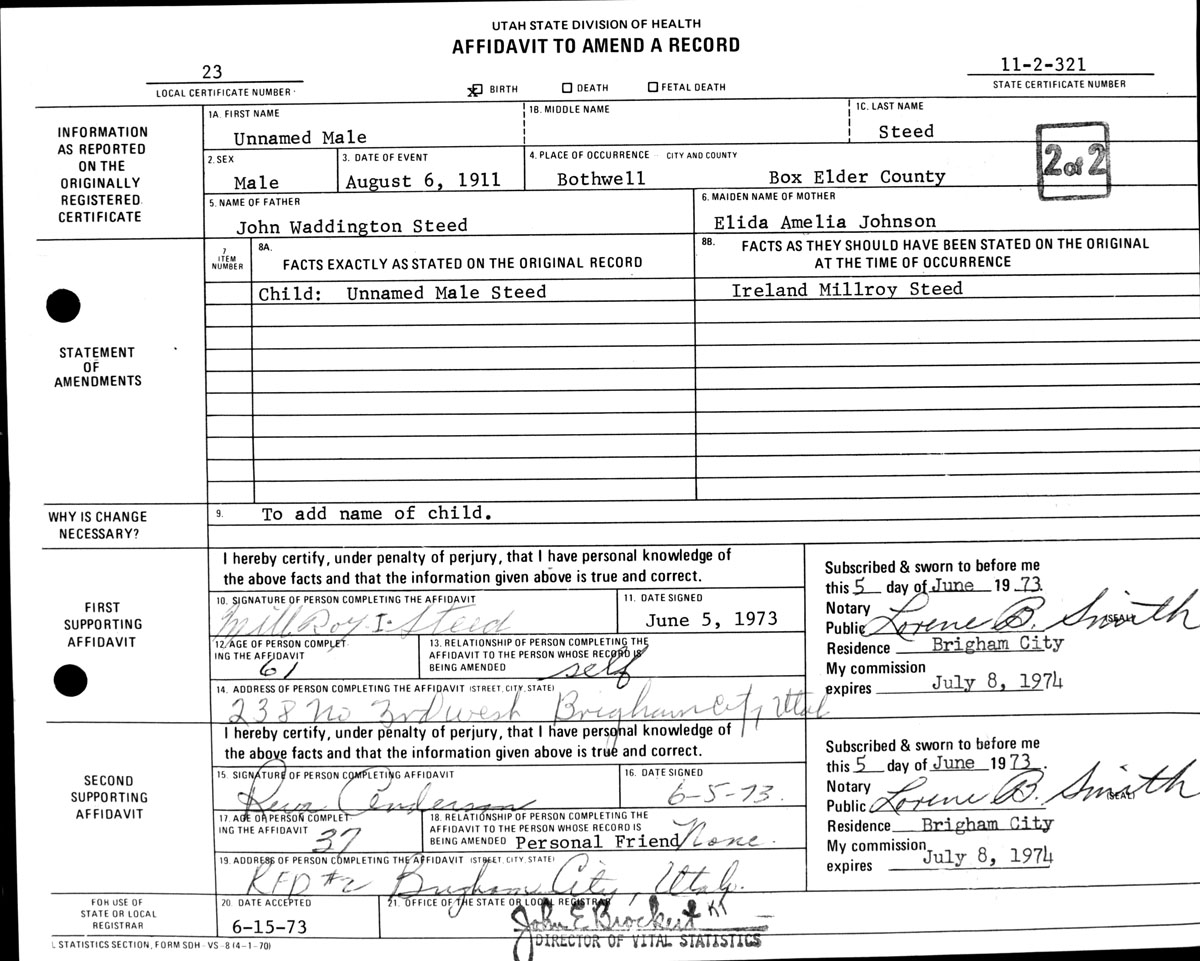 UTAH STATE DIVISION OF HEALTH
AFFIDAVIT TO AMEND A RECORD
23
LOCAL CERTIFICATE NUMBER
x BIRTH DEATH FETAL DEATH
11-2-321
STATE CERTIFICATE NUMBER
INFORMATION
AS REPORTED
ON THE
ORIGINALLY
REGISTERED
CERTIFICATE
1A. FIRST NAME
Unnamed Male
1B. MIDDLE NAME
1C. LAST NAME
Steed
2. SEX
Male
3. DATE OF EVENT
August 6, 1911
4. PLACE OF OCCURRENCE – CITY AND COUNTY
Bothwell Box Elder County
2 of 2
5. NAME OF FATHER
John Waddington Steed
6. MAIDEN NAME OF MOTHER
Elida Amelia Johnson
STATEMENT
OF
AMENDMENTS
7
ITEM
NUMBER
8A.
FACTS EXACTLY AS STATED ON THE ORIGINAL RECORD
8B. FACTS AS THEY SHOULD HAVE BEEN STATED ON THE ORIGINAL
AT THE TIME OF OCCURRENCE
Child: Unnamed Male Steed
Ireland Millroy Steed
WHY IS CHANGE
NECESSARY?
9. To add name of child.
FIRST
SUPPORTING
AFFIDAVIT
I hereby certify, under penalty of perjury, that I have personal knowledge of
the above facts and that the information given above is true and correct.
10. SIGNATURE OF PERSON COMPLETING THE AFFIDAVIT
MillRoy I. Steed
11. DATE SIGNED
June 5, 1973
12. AGE OF PERSON COMPLET-
ING THE AFFIDAVIT
61
13. RELATIONSHIP OF PERSON COMPLETING THE
AFFIDAVIT TO THE PERSON WHOSE RECORD IS
BEING AMENDED self
14. ADDRESS OF PERSON COMPLETING THE AFFIDAVIT (STREET, CITY, STATE)
238 No 3rd West Brigham City, Utah
Subscribed & sworn to before me
this 5 day of June 19 73.
Notary
Public Lorene B. Smith (SEAL)
Residence Brigham City
My commission
expires July 8, 1974
SECOND
SUPPORTING
AFFIDAVIT
I hereby certify, under penalty of perjury, that I have personal knowledge of
the above facts and that the information given above is true and correct.
15. SIGNATURE OF PERSON COMPLETING AFFIDAVIT
Anderson
16. DATE SIGNED
6-5-73.
17. AGE OF PERSON COMPLET-
ING THE AFFIDAVIT
37
18. RELATIONSHIP OF PERSON COMPLETING THE
AFFIDAVIT TO THE PERSON WHOSE RECORD IS
BEING AMENDED Personal Friend None.
19. ADDRESS OF PERSON COMPLETING THE AFFIDAVIT (STREET, CITY, STATE)
RFD #2 Brigham City, Utah.
Subscribed & sworn to before me
this 5 day of June 19 73.
Notary
Public Lorene B. Smith (SEAL)
Residence Brigham City
My commission
expires July 8, 1974
FOR USE OF
STATE OR LOCAL
REGISTRAR
20. DATE ACCEPTED
6-15-73
21. OFFICE OF THE STATE OR LOCAL REGISTRAR
John E Brockert KT
DIRECTOR OF VITAL STATISTICS
L STATISTICS SECTION, FORM SDH - VS - 8 (4-1-70)